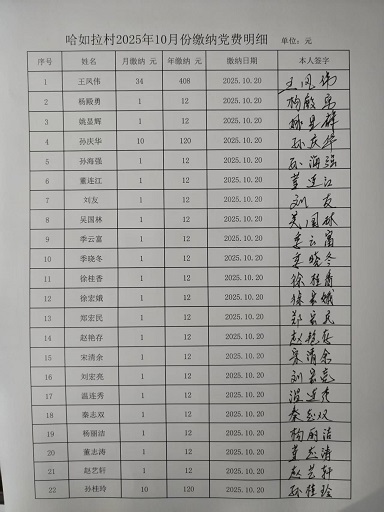 哈如拉村2025年10月份缴纳党费明细 单位：元
序号 姓名 月缴纳 元 年缴纳 元 缴纳日期 本人签字
1 王凤伟 34 408 2025.10.20 王凤伟
2 杨殿勇 1 12 2025.10.20 杨殿勇
3 姚显辉 1 12 2025.10.20 姚显辉
4 孙庆华 10 120 2025.10.20 孙庆华
5 孙海强 1 12 2025.10.20 孙海强
6 董连江 1 12 2025.10.20 董连江
7 刘友 1 12 2025.10.20 刘友
8 吴国林 1 12 2025.10.20 吴国林
9 季云富 1 12 2025.10.20 季云富
10 季晓冬 1 12 2025.10.20 季晓冬
11 徐桂香 1 12 2025.10.20 徐桂香
12 徐宏娥 1 12 2025.10.20 徐宏娥
13 郑宏民 1 12 2025.10.20 郑宏民
14 赵艳存 1 12 2025.10.20 赵艳存
15 宋清余 1 12 2025.10.20 宋清余
16 刘宏亮 1 12 2025.10.20 刘宏亮
17 温连秀 1 12 2025.10.20 温连秀
18 秦志双 1 12 2025.10.20 秦志双
19 杨丽洁 1 12 2025.10.20 杨丽洁
20 董志涛 1 12 2025.10.20 董志涛
21 赵艺轩 1 12 2025.10.20 赵艺轩
22 孙桂玲 10 120 2025.10.20 孙桂玲